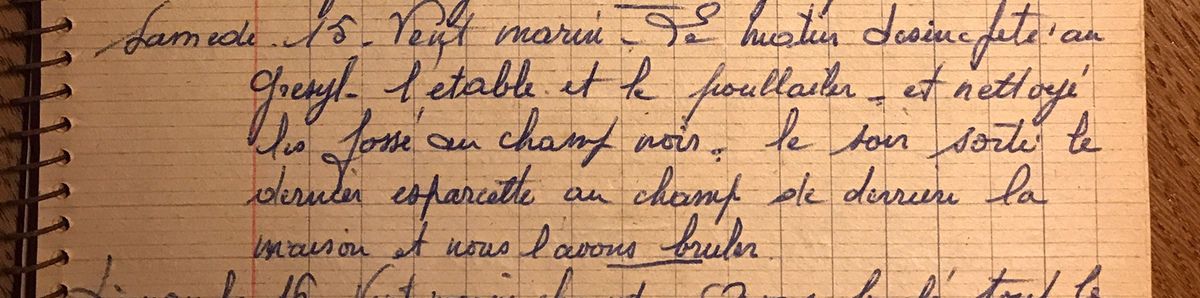 Samedi 15 - Vent marin - Le matin desinfeté au
Gresyl - l'étable et le poullailer - et nettoyé
les fossé au champ noir. le soir sorti le
dernier esparcette au champ de derriere la
maison et nous l'avons bruler
16 Vent tout le